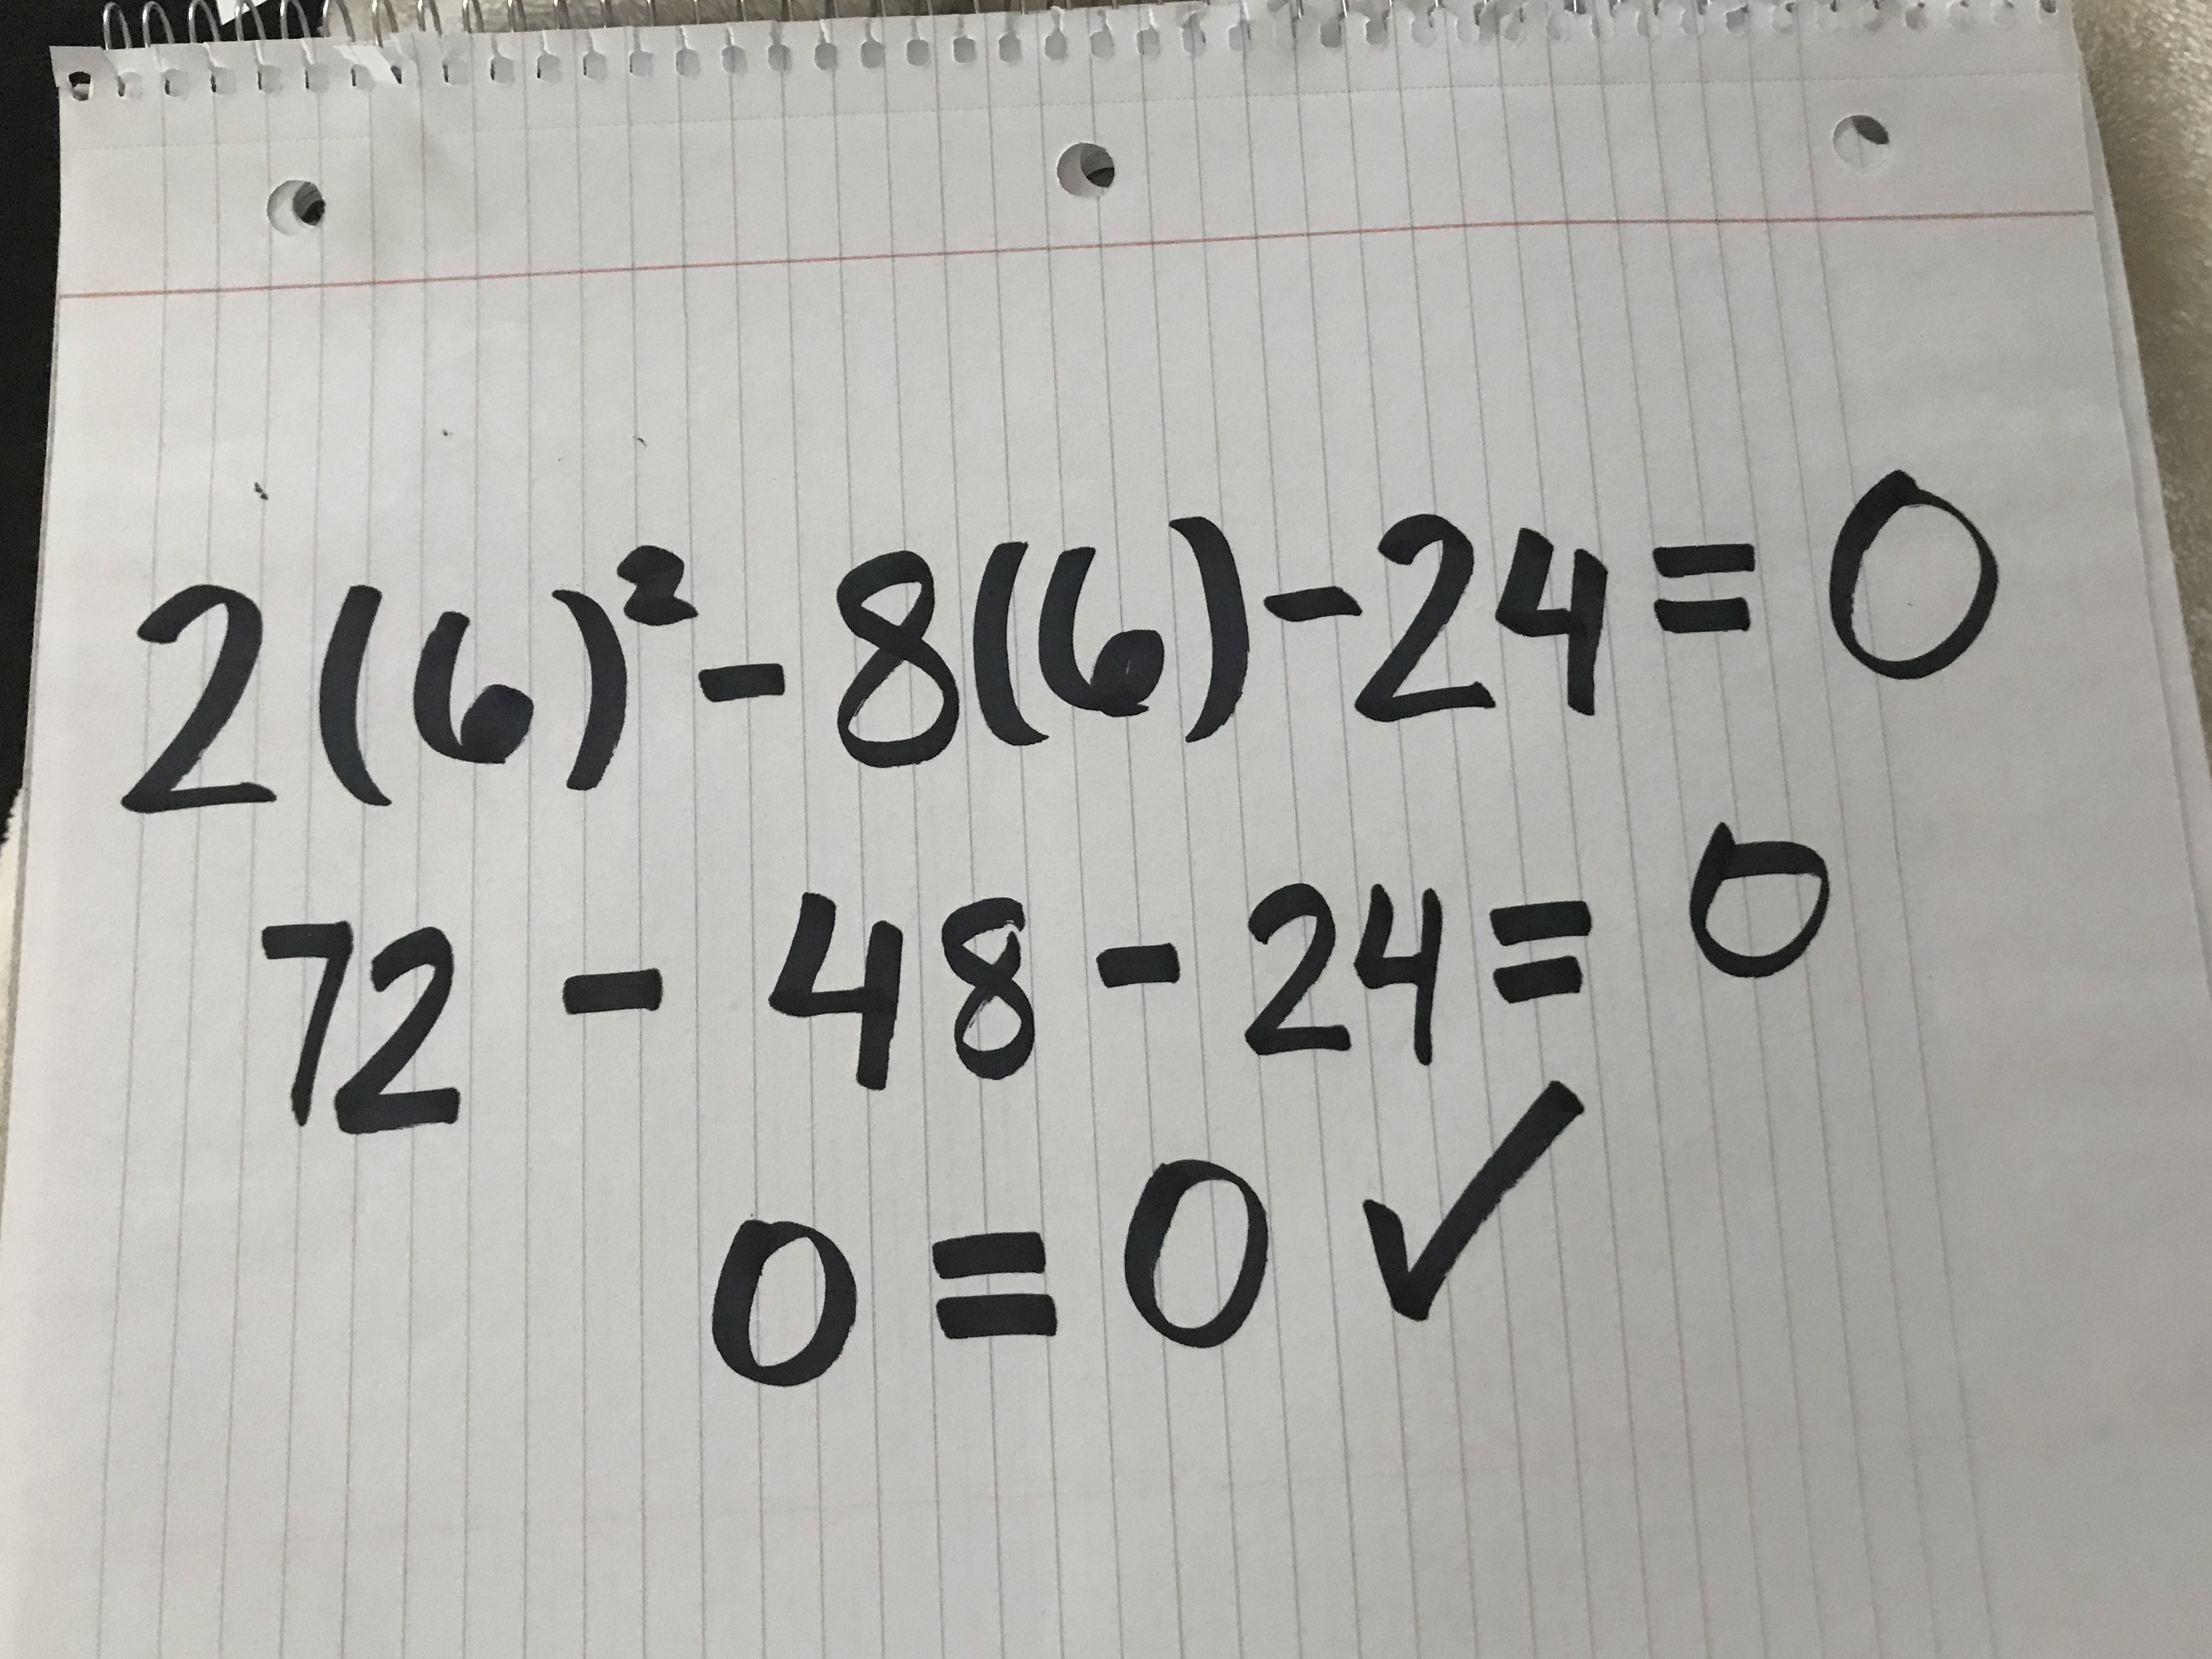 2(6)² - 8(6) - 24 = 0
72 - 48 - 24 = 0
0 = 0 ✓